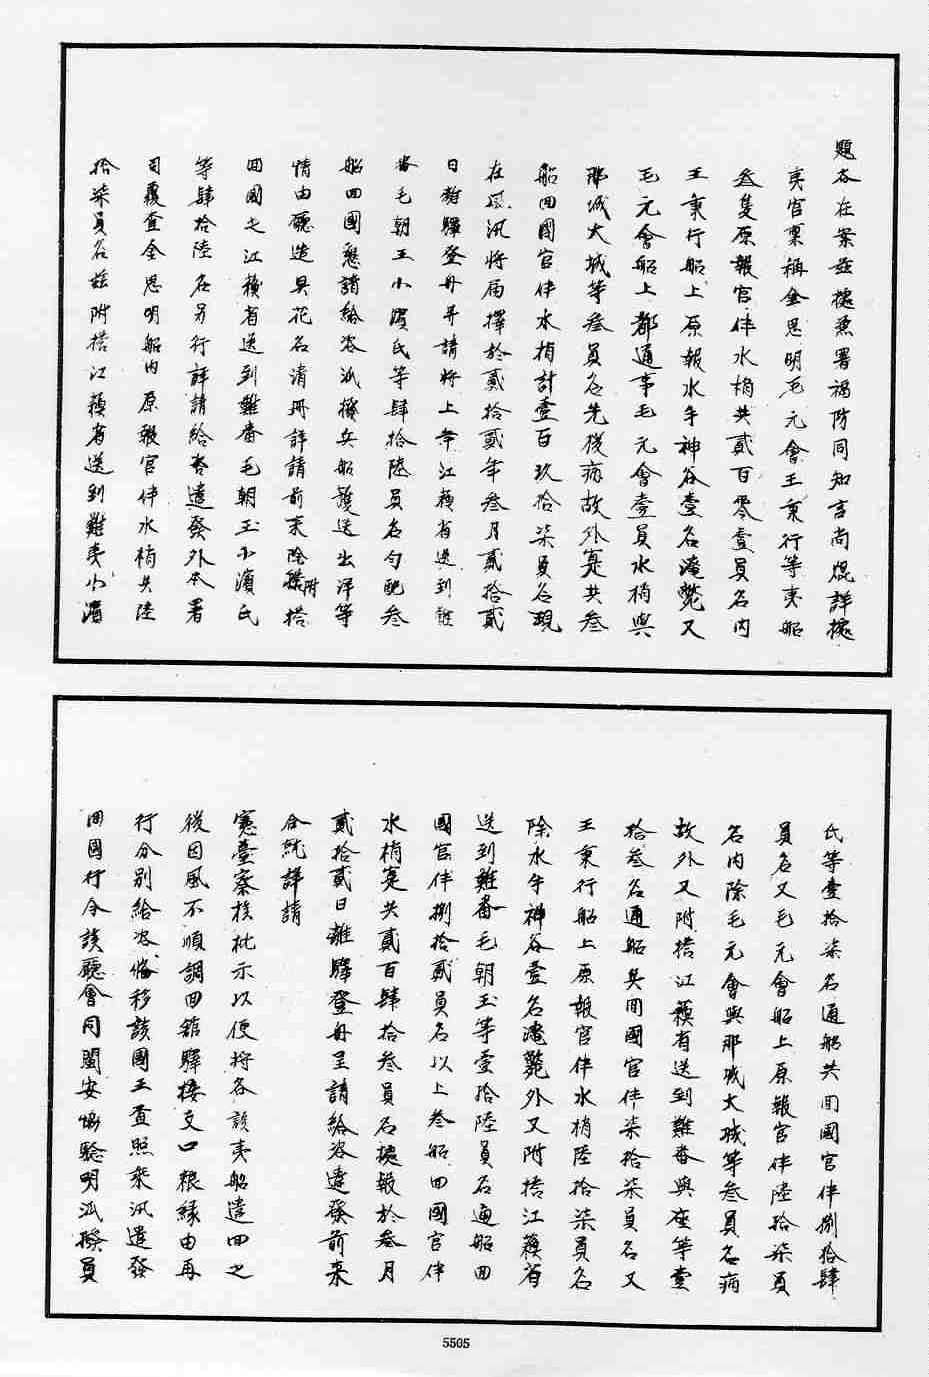 題咨在案茲據兼署福防同知言尚焜詳據
夷官稟稱金思明毛元會王秉行等夷船
叁隻原報官伴水梢共貳百零壹員名內
王秉行船上原報水手神谷壹名淹斃又
毛元會船上都通事毛元會壹員水梢與
那城大城等叁員名先後病故外寔共叁
船回國官伴水梢計壹百玖拾柒員名現
在風汛將屆擇於貳拾貳年叁月貳拾貳
日離驛登舟并請將上年江蘇省送到難
番毛朝玉小濱氏等肆拾陸員名勻配叁
船回國懇請給咨派撥兵船護送出洋等
情由廳造具花名清冊詳請前來除附搭
回國之江蘇省送到難番毛朝玉小濱氏
等肆拾陸名另行詳請給咨遣發外本署
司覆查金思明船內原報官伴水梢共陸
拾柒員名茲附搭江蘇省送到難夷小濱
氏等壹拾柒名通船共回國官伴捌拾肆
員名又毛元會船上原報官伴陸拾柒員
名內除毛元會與那城大城等叁員名病
故外又附搭江蘇省送到難番與座等壹
拾叁名通船共回國官伴柒拾柒員名又
王秉行船上原報官伴水梢陸拾柒員名
除水手神谷壹名淹斃外又附搭江蘇省
送到難番毛朝玉等壹拾陸員名通船回
國官伴捌拾貳員名以上叁船回國官伴
水梢寔共貳百肆拾叁員名據報於叁月
貳拾貳日離驛登舟呈請給咨遣發前來
合就詳請
憲臺察核批示以便將各該夷船遣回之
後因風不順調回館驛接支口粮緣由再
行分別給咨備移該國王查照乘汛遣發
回國行令該廳會同閩安協驗明派撥員
5505